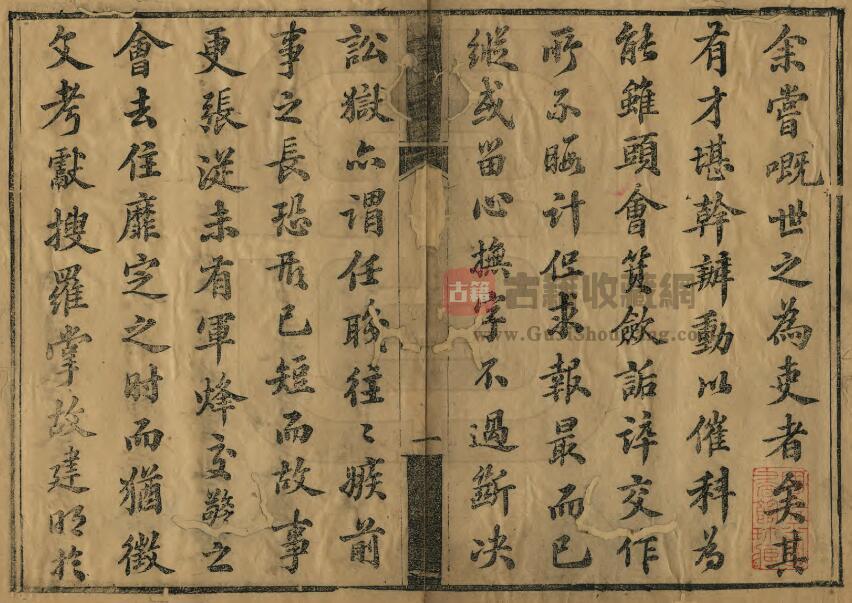 余嘗嘅世之為吏者矣其
有才堪幹辦動以催科為
能雖頭會箕斂詬誶交作
所不暇計但求報最而已
縱或留心撫字不過斷决
訟獄亦謂任職徃〻嫉前
一
事之長恐形已短而故事
更張従未有軍烽交警之
會去住靡定之時而猶徵
文考獻搜羅掌故建明於
古籍 古籍收藏網
www.GujiShoucang.com